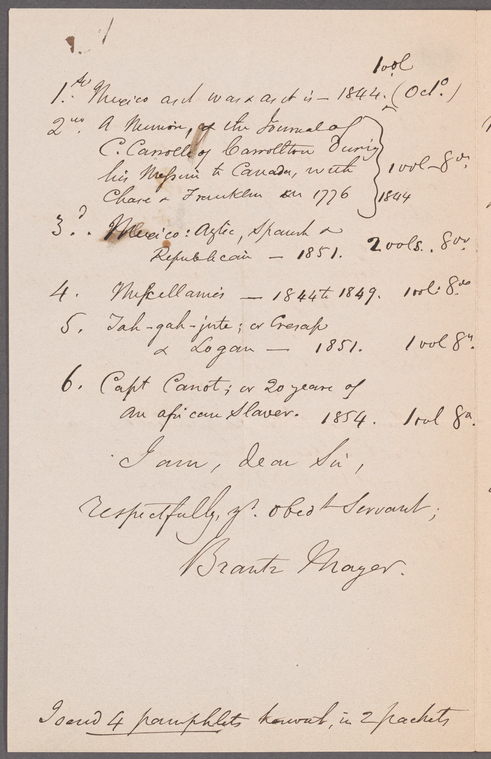 1 vol
1.st Mexico as it was & as it is — 1844. (Oct.o)
2nd. A Memoir, & the Journal of
C. Carroll of Carrollton During
his Mission to Canada, with 1 vol — 8vo.
Chase & Franklin in 1776 1844
3d. Mexico: Aztec, Spanish &
Republican — 1851. 2 vols. 8vo
4. Miscellanies — 1844 to 1849. 1 vol: 8vo
5. Tah-gah-jute; or Cresap
& Logan — 1851. 1 vol 8vo.
6. Capt Canot; or 20 years of
an african Slaver. 1854. 1 vol 8vo.
I am, dear Sir,
respectfully, yr. obedt Servant;
Brantz Mayer.
I send 4 pamphlets herewith, in 2 packets